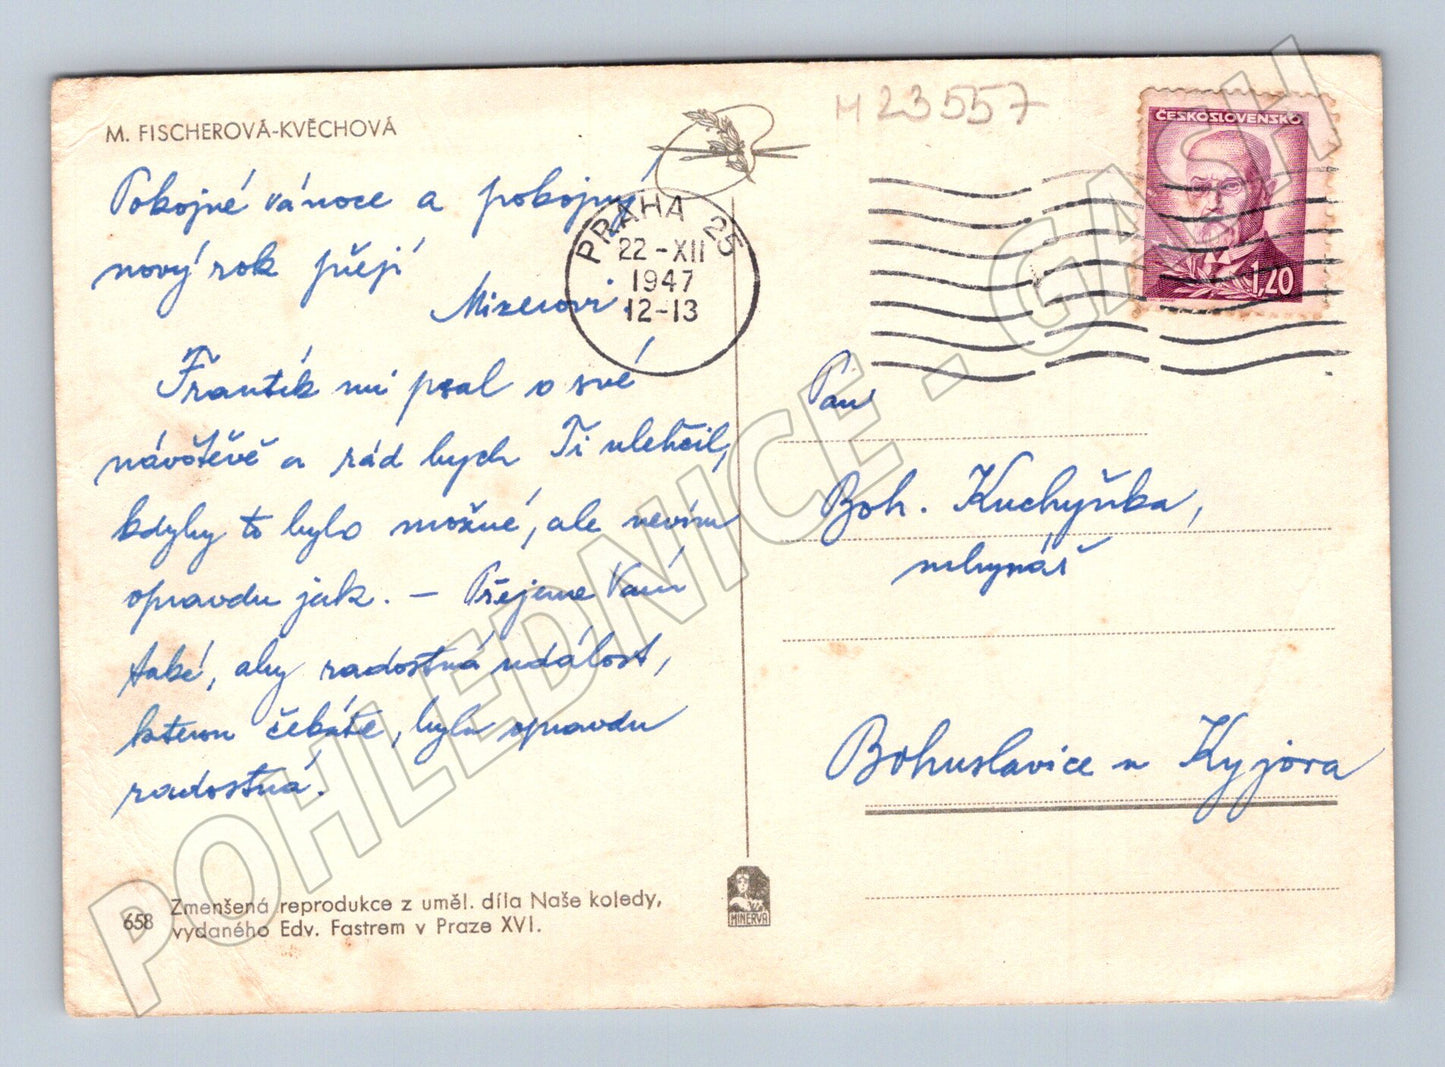 M. FISCHEROVÁ-KVĚCHOVÁ
Pokojné vánoce a pokojný
nový rok přejí
Mizerovi.
Frantík mi psal o své
návštěvě a rád bych Ti ulehčil,
kdyby to bylo možné, ale nevím
opravdu jak. – Přejeme Vám
také, aby radostná událost,
kterou čekáte, byla opravdu
radostná.
658 Zmenšená reprodukce z uměl. díla Naše koledy,
vydaného Edv. Fastrem v Praze XVI.
MINERVA
M 23557
PRAHA 25
22-XII
1947
12-13
ČESKOSLOVENSKO
1,20
Paní
Boh. Kuchyňka,
mlynář
Bohuslavice u Kyjova
POHLEDNICE - GASH